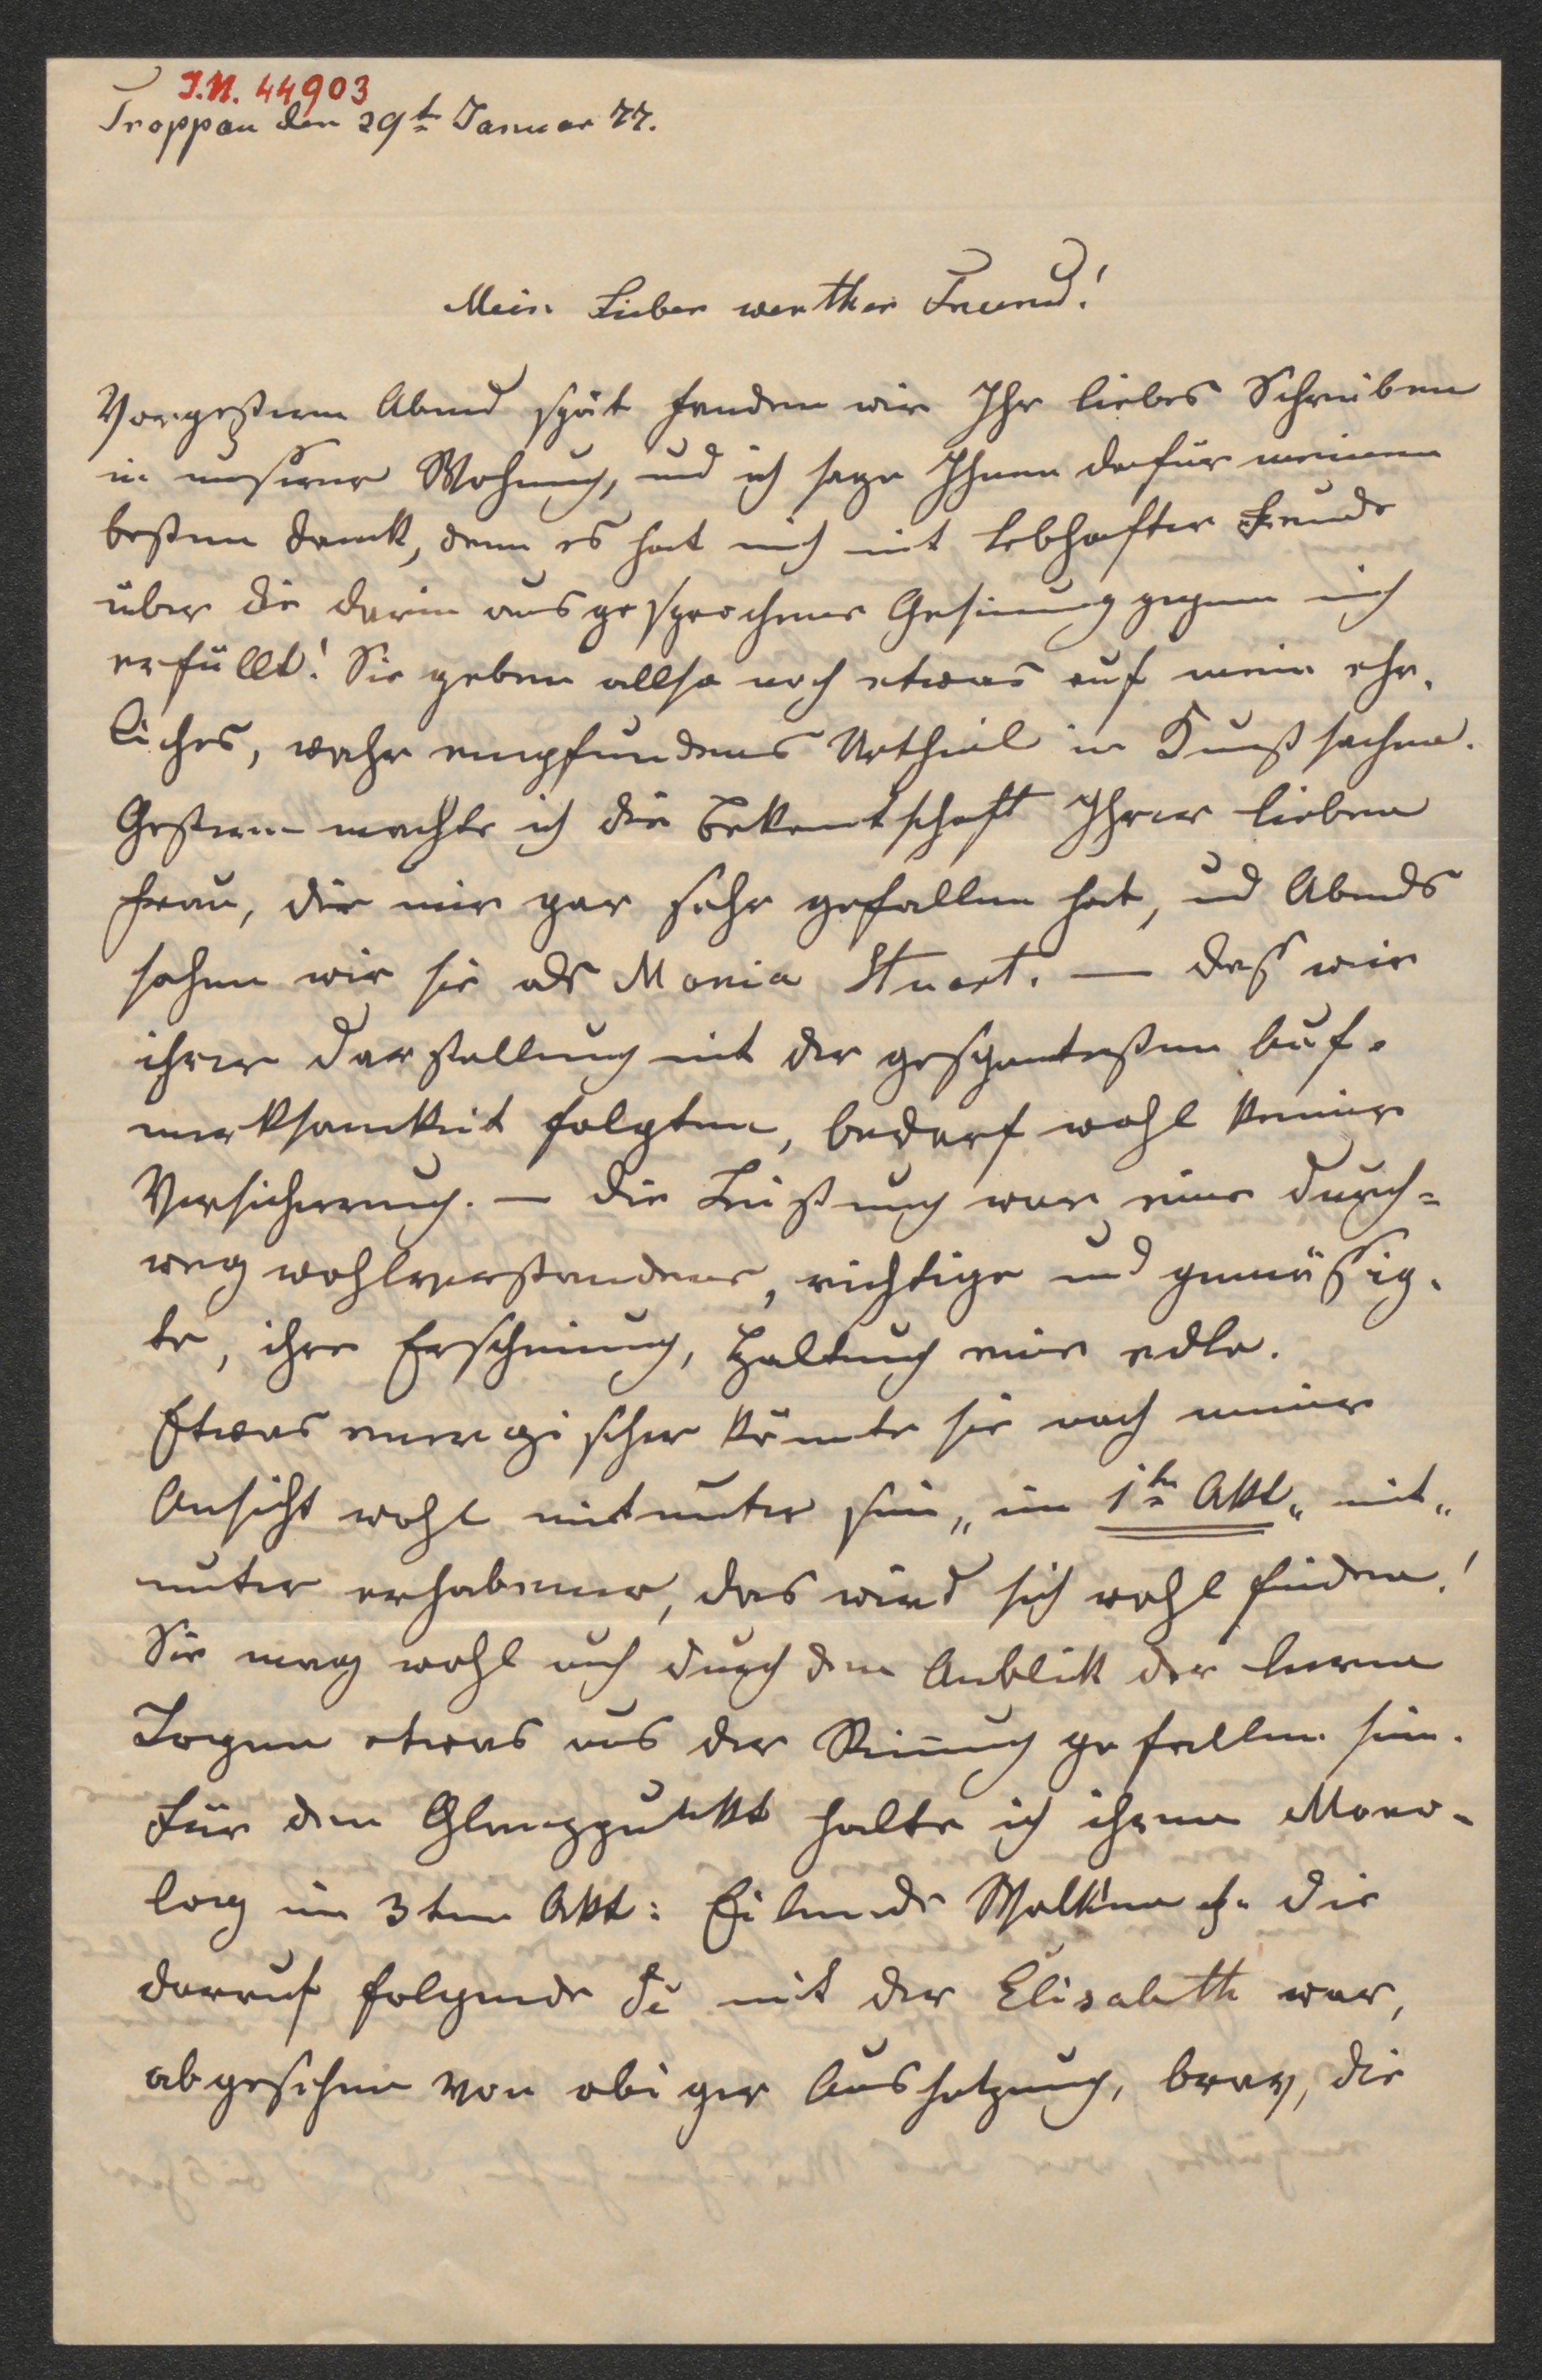 J.N. 44903
Troppau den 29t Januar 77.
Mein Lieber werther Freund!
Vorgestern Abend spät fanden wir Ihr liebes Schreiben
in unserer Wohnung, und ich sage Ihnen dafür meinen
besten Dank, denn es hat mich mit lebhafter Freude
über die darin ausgesprochene Gesinung gegen mich
erfüllt! Sie geben allso noch etwas auf mein ehr-
liches, wahr empfundenes Urtheil in Kunstsachen.
Gestern machte ich die Bekantschaft Ihrer lieben
Frau, die mir gar sehr gefallen hat, und Abends
sahen wir sie als Maria Stuart. — Daß wir
ihrer Darstellung mit der gespantesten Auf-
merksamkeit folgten, bedarf wohl keiner
Versicherung. — Die Leistung war eine durch=
weg wohlverstandene, richtige und gemässig-
te, ihre Erscheinung, Haltung eine edle.
Etwas energischer könnte sie nach meiner
Ansicht wohl mitunter sein, „im 1tn Akt" mit-
unter erhabener, das wird sich wohl finden!
Sie mag wohl auch durch den Anblick der leeren
Logen etwas aus der Stimmung gefallen sein.
Für den Glanzpunkt halte ich ihren Mono-
log im 3ten Akt: Eilende Wolken die
darauf folgende mit der Elisabeth war,
abgesehen von obiger Aussetzung, brav, die